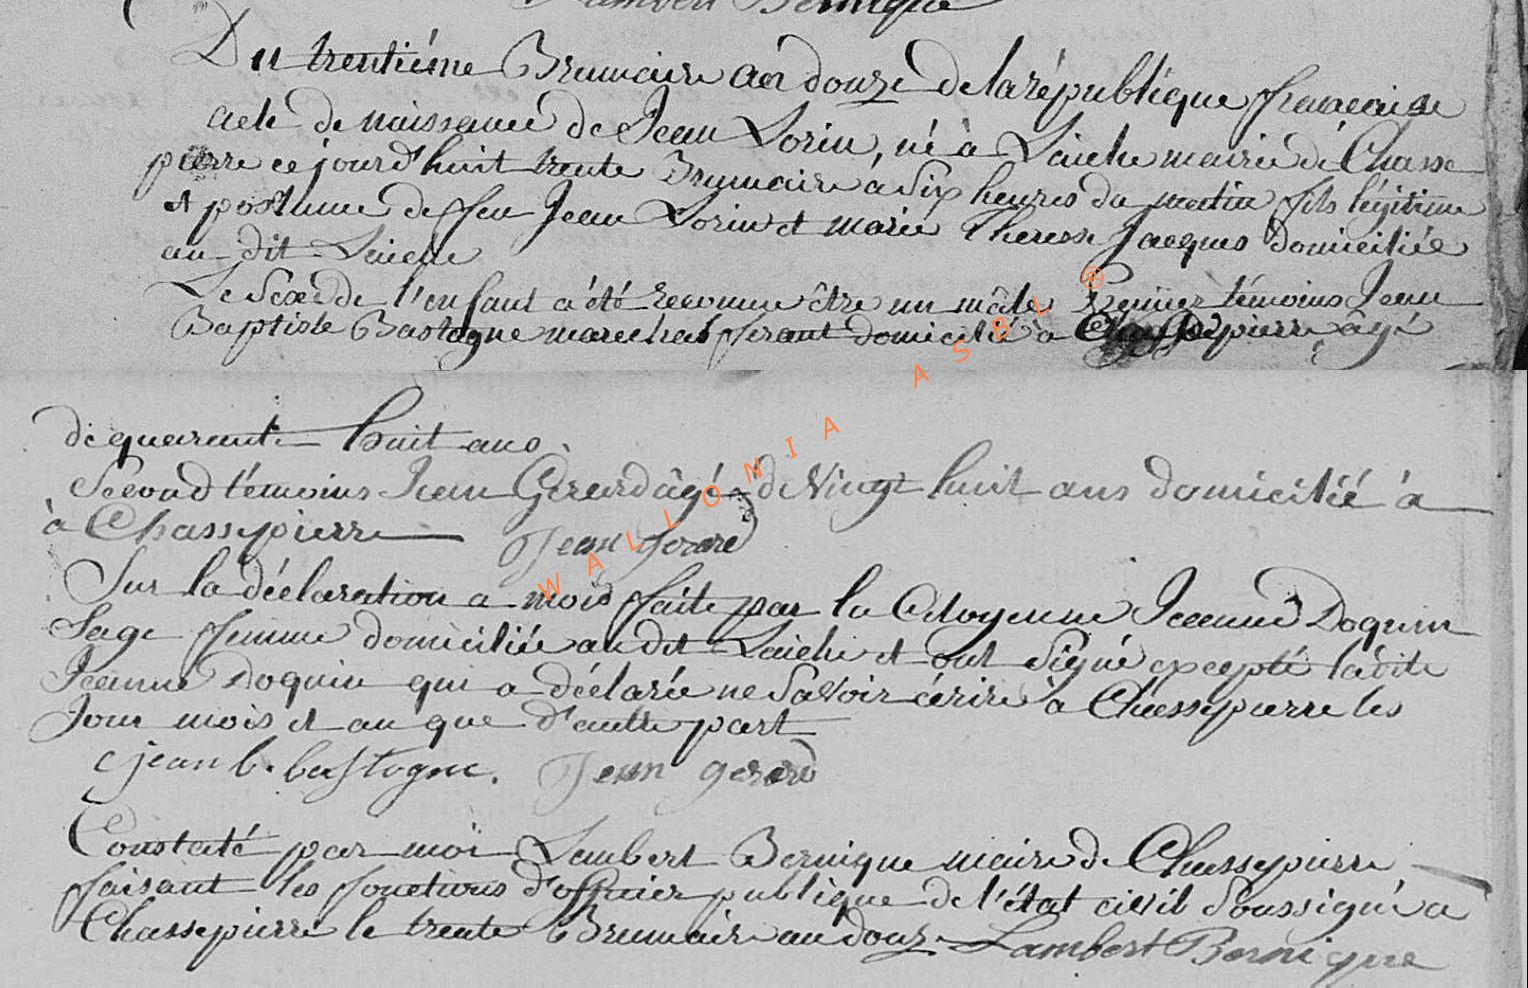 Lambert Bernique
Du trentiéme Brumaire an douze de la république francaise
acte de naissance de Jean Lorin, né à Laiche mairie de Chasse
pierre ce jourd'huit trente Brumaire a Six heures du matin fils légitime
et postume de feu Jean Lorin et marie Therese Jacques domiciliée
au dit Laiche
Le Sexe de l'enfant a été reconnu être un mâle Premier témoins Jean
Baptiste Bastogne marechal ferant domicilié à Chassepierre âgé
de quarante huit ans.
Second témoins Jean Gerard âgé de Vingt huit ans domicilié à
à Chassepierre Jean gerard
Sur la déclaration a mois faite par la Citoyenne Jeanne Doquin
Sage femme domiciliée audit Laiche et ont Signé excepté ladite
Jeanne Doquin qui a déclarée ne Savoir écrire à Chassepierre les
Jour mois et an que d'autre part
jean b. bastogne. Jean gerard
Constaté par moi Lambert Bernique maire de Chassepierre
faisant les fonctions d'officier publique de l'état civil Soussigné a
Chassepierre le trente Brumaire an douze Lambert Bernique
WALLONIA ASBL ®